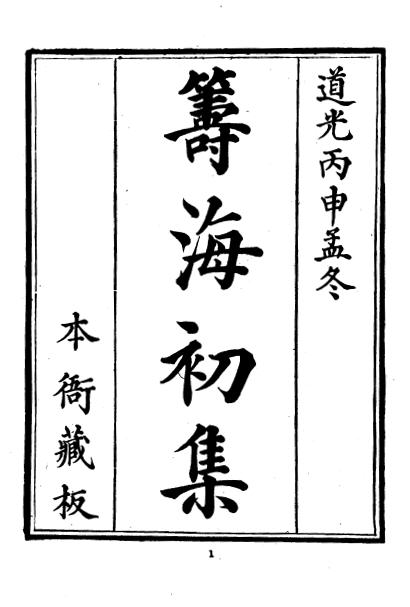 道光丙申孟冬
籌海初集
本衙藏板
1